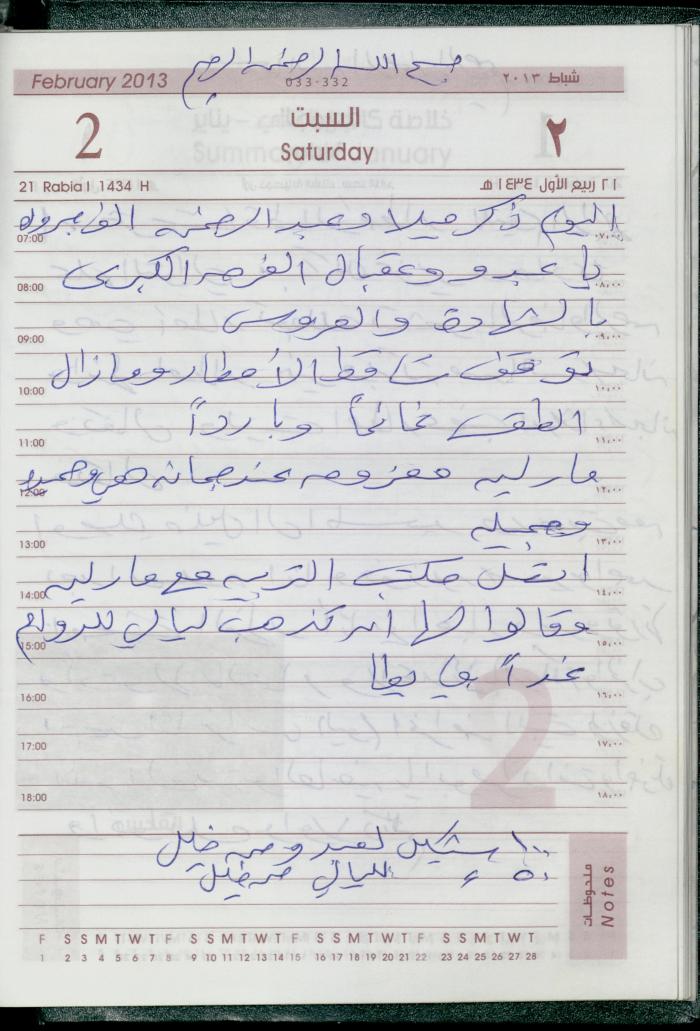 بسم الله الرحمن الرحيم
February 2013 033-332 شباط ٢٠١٣
2 السبت ٢
Saturday
21 Rabia I 1434 H ٢١ ربيع الأول ١٤٣٤ هـ
اليوم ذكر ميلاد عبد الرحمن الف مبروك
07:00 ٠٧,٠٠
يا عبدو وعقبال الفرحه الكبرى
08:00 ٠٨,٠٠
بالشهادة والعروس
09:00 ٠٩,٠٠
توقف تساقط الأمطار ومازال
10:00 ١٠,٠٠
الطقس غائماً وبارداً
11:00 ١١,٠٠
مارليه معزومه عند جمانه هي
12:00 ١٢,٠٠
وجميله
13:00 ١٣,٠٠
اتصل مكتب التربيه مع مارليه
14:00 ١٤,٠٠
وقالوا لها أن تذهب ليالي للدوام
15:00 ١٥,٠٠
غداً في يطا
16:00 ١٦,٠٠
17:00 ١٧,٠٠
18:00 ١٨,٠٠
١٠٠ شيكل لعبدو من خليل
٥٠ ء لليالي من خليل
ملحوظات Notes
F S S M T W T F S S M T W T F S S M T W T F S S M T W T
1 2 3 4 5 6 7 8 9 10 11 12 13 14 15 16 17 18 19 20 21 22 23 24 25 26 27 28